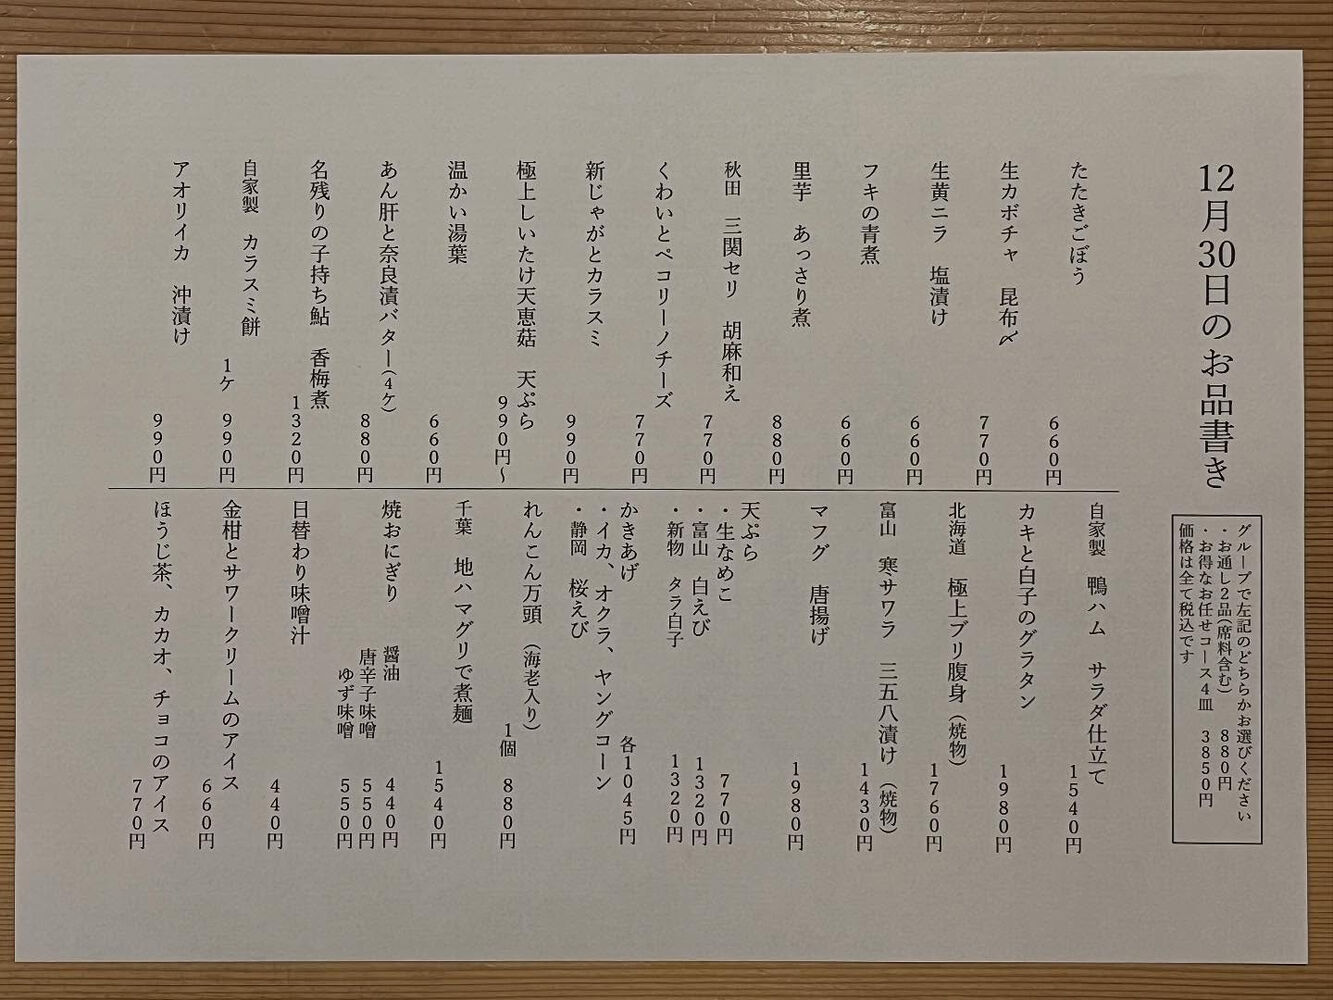 12月30日のお品書き
グループで左記のどちらかお選びください
・お通し2品(席料含む) 880円
・お得なお任せコース4皿 3850円
価格は全て税込です
たたきごぼう 660円
生カボチャ 昆布〆 770円
生黄ニラ 塩漬け 660円
フキの青煮 660円
里芋 あっさり煮 880円
秋田 三関セリ 胡麻和え 770円
くわいとペコリーノチーズ 770円
新じゃがとカラスミ 990円
極上しいたけ天恵菇 天ぷら 990円～
温かい湯葉 660円
あん肝と奈良漬バター(4ケ) 880円
名残りの子持ち鮎 香梅煮 1320円
自家製 カラスミ餅 1ケ 990円
アオリイカ 沖漬け 990円
自家製 鴨ハム サラダ仕立て 1540円
カキと白子のグラタン 1980円
北海道 極上ブリ腹身(焼物) 1760円
富山 寒サワラ 三五八漬け(焼物) 1430円
マフグ 唐揚げ 1980円
天ぷら
・生なめこ 770円
・富山 白えび 1320円
・新物 タラ白子 1320円
かきあげ 各1045円
・イカ、オクラ、ヤングコーン
・静岡 桜えび
れんこん万頭(海老入り) 1個 880円
千葉 地ハマグリで煮麺 1540円
焼おにぎり 醤油 440円
唐辛子味噌 550円
ゆず味噌 550円
日替わり味噌汁 440円
金柑とサワークリームのアイス 660円
ほうじ茶、カカオ、チョコのアイス 770円